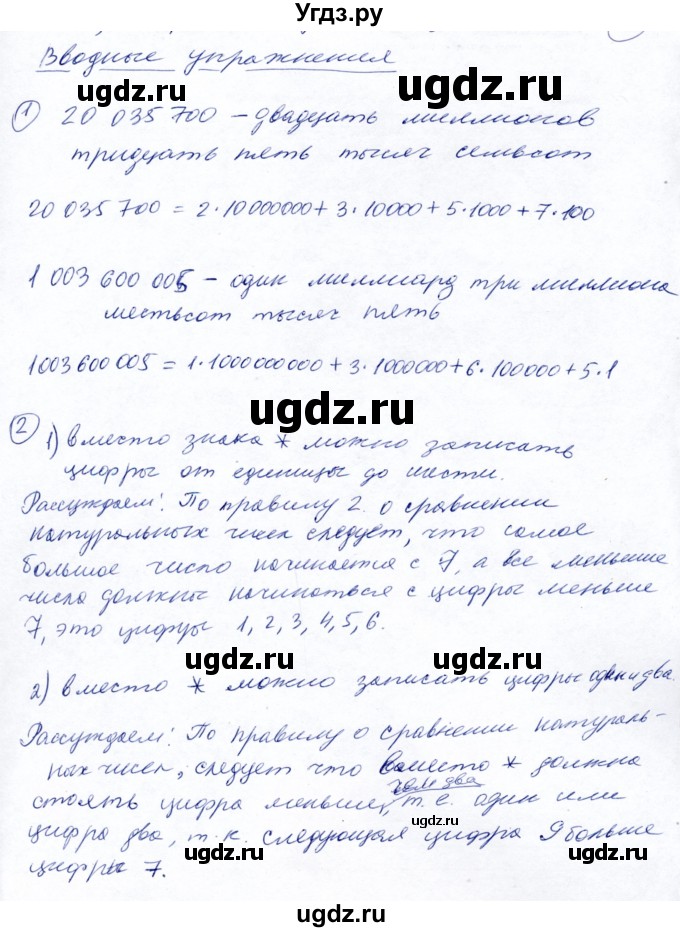 УгДз.ру
Вводные упражнения
1 20 035 700 – двадцать миллионов
тридцать пять тысяч семьсот
20 035 700 = 2·10000000 + 3·10000 + 5·1000 + 7·100
1 003 600 005 – один миллиард три миллиона
шестьсот тысяч пять
1003600005 = 1·1000000000 + 3·1000000 + 6·100000 + 5·1
ugdz.ru
2 1) вместо знака * можно записать
цифры от единицы до шести.
ugdz.ru
Рассуждаем: По правилу 2. о сравнении
натуральных чисел следует, что самое
большое число начинается с 7, а все меньшие
числа должны начинаться с цифры меньше
7, это цифры 1, 2, 3, 4, 5, 6.
ugdz.ru ugdz.ru
2) вместо * можно записать цифры один и два.
Рассуждаем: По правилу о сравнении натураль-
ных чисел, следует что вместо * должна
стоять цифра меньше, чем два, т. е. один или
ugdz.ru ugdz.ru
цифра два, т.к. следующая цифра 9 больше
цифры 7.
ugdz.ru ugdz.ru
ugdz.ru